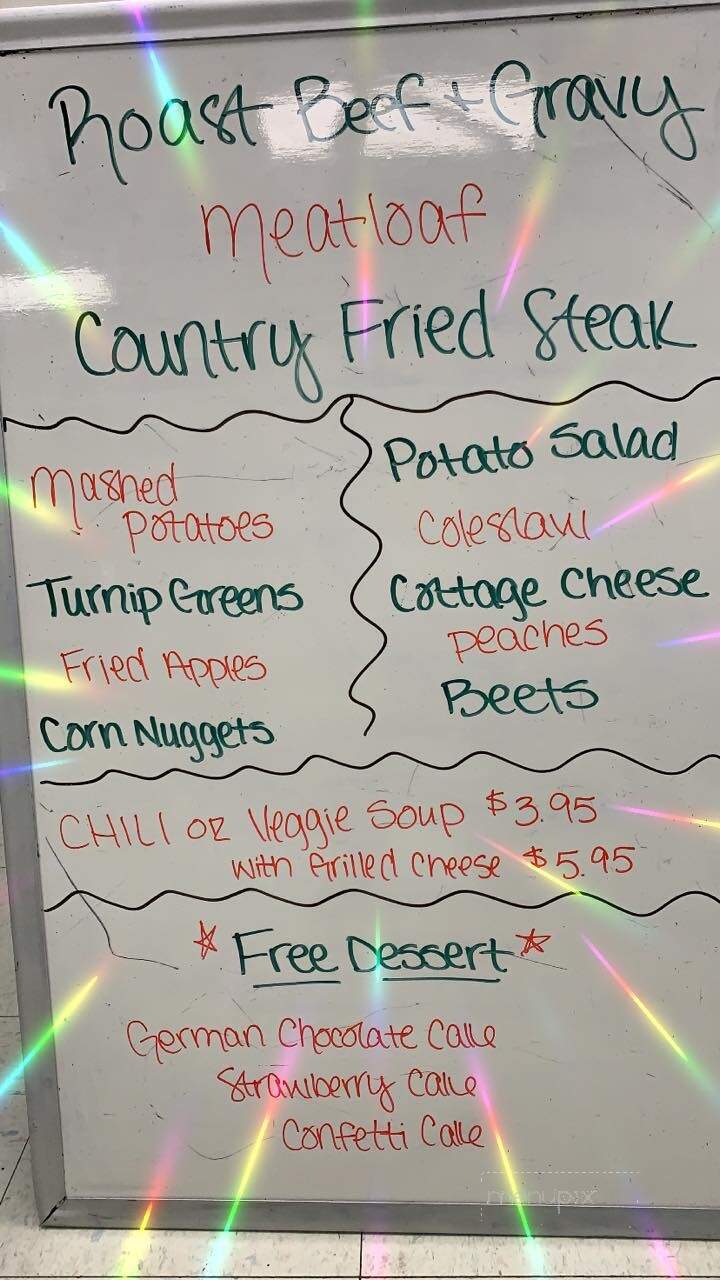 Roast Beef + Gravy
Meatloaf
Country Fried Steak
Mashed
Potatoes
Turnip Greens
Fried Apples
Corn Nuggets
Potato Salad
Coleslaw
Cottage Cheese
Peaches
Beets
CHILI or Veggie Soup $3.95
with Grilled Cheese $5.95
Free Dessert
German Chocolate Cake
Strawberry Cake
Confetti Cake
menupix